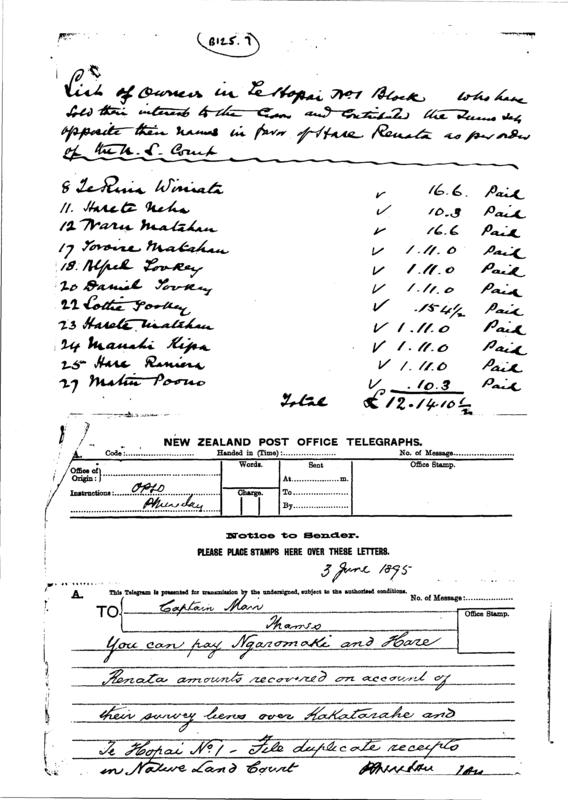 B125.7
List of Owners in Te Hopai No1 Block who have
sold their interest to the Crown and Contributed the Sums set
opposite their names in favor of Hare Renata as per order
of the N. L. Court
8 Te Rina Winiata ✓ 16.6. Paid
11. Harete Neha ✓ 10.3 Paid
12 Waru Matahau ✓ 16.6 Paid
17 Matahau ✓ 1.11.0 Paid
18. Alfred Tookey ✓ 1.11.0 Paid
20 Daniel Tookey ✓ 1.11.0 Paid
22 Lottie Tookey ✓ .15 4½ Paid
23 Harete Matahau ✓ 1.11.0 Paid
24 Manahi Kipa ✓ 1.11.0 Paid
25 Hare Raniera ✓ 1.11.0 Paid
27 Poono ✓ .10.3 Paid
Total £12.14.10½
NEW ZEALAND POST OFFICE TELEGRAPHS.
A. Code: Handed in (Time): No. of Message
Office of Origin: Words. Sent Office Stamp.
At m.
Instructions: Charge. To
By
Notice to Sender.
PLEASE PLACE STAMPS HERE OVER THESE LETTERS.
3 June 1895
A. This Telegram is presented for transmission by the undersigned, subject to the authorised conditions. No. of Message:
TO Captain Mair Office Stamp.
Thames
You can pay Ngaromaki and Hare
Renata amounts recovered on account of
their survey liens over Kakatarahe and
Te Hopai No 1 - File duplicate receipts
in Native Land Court